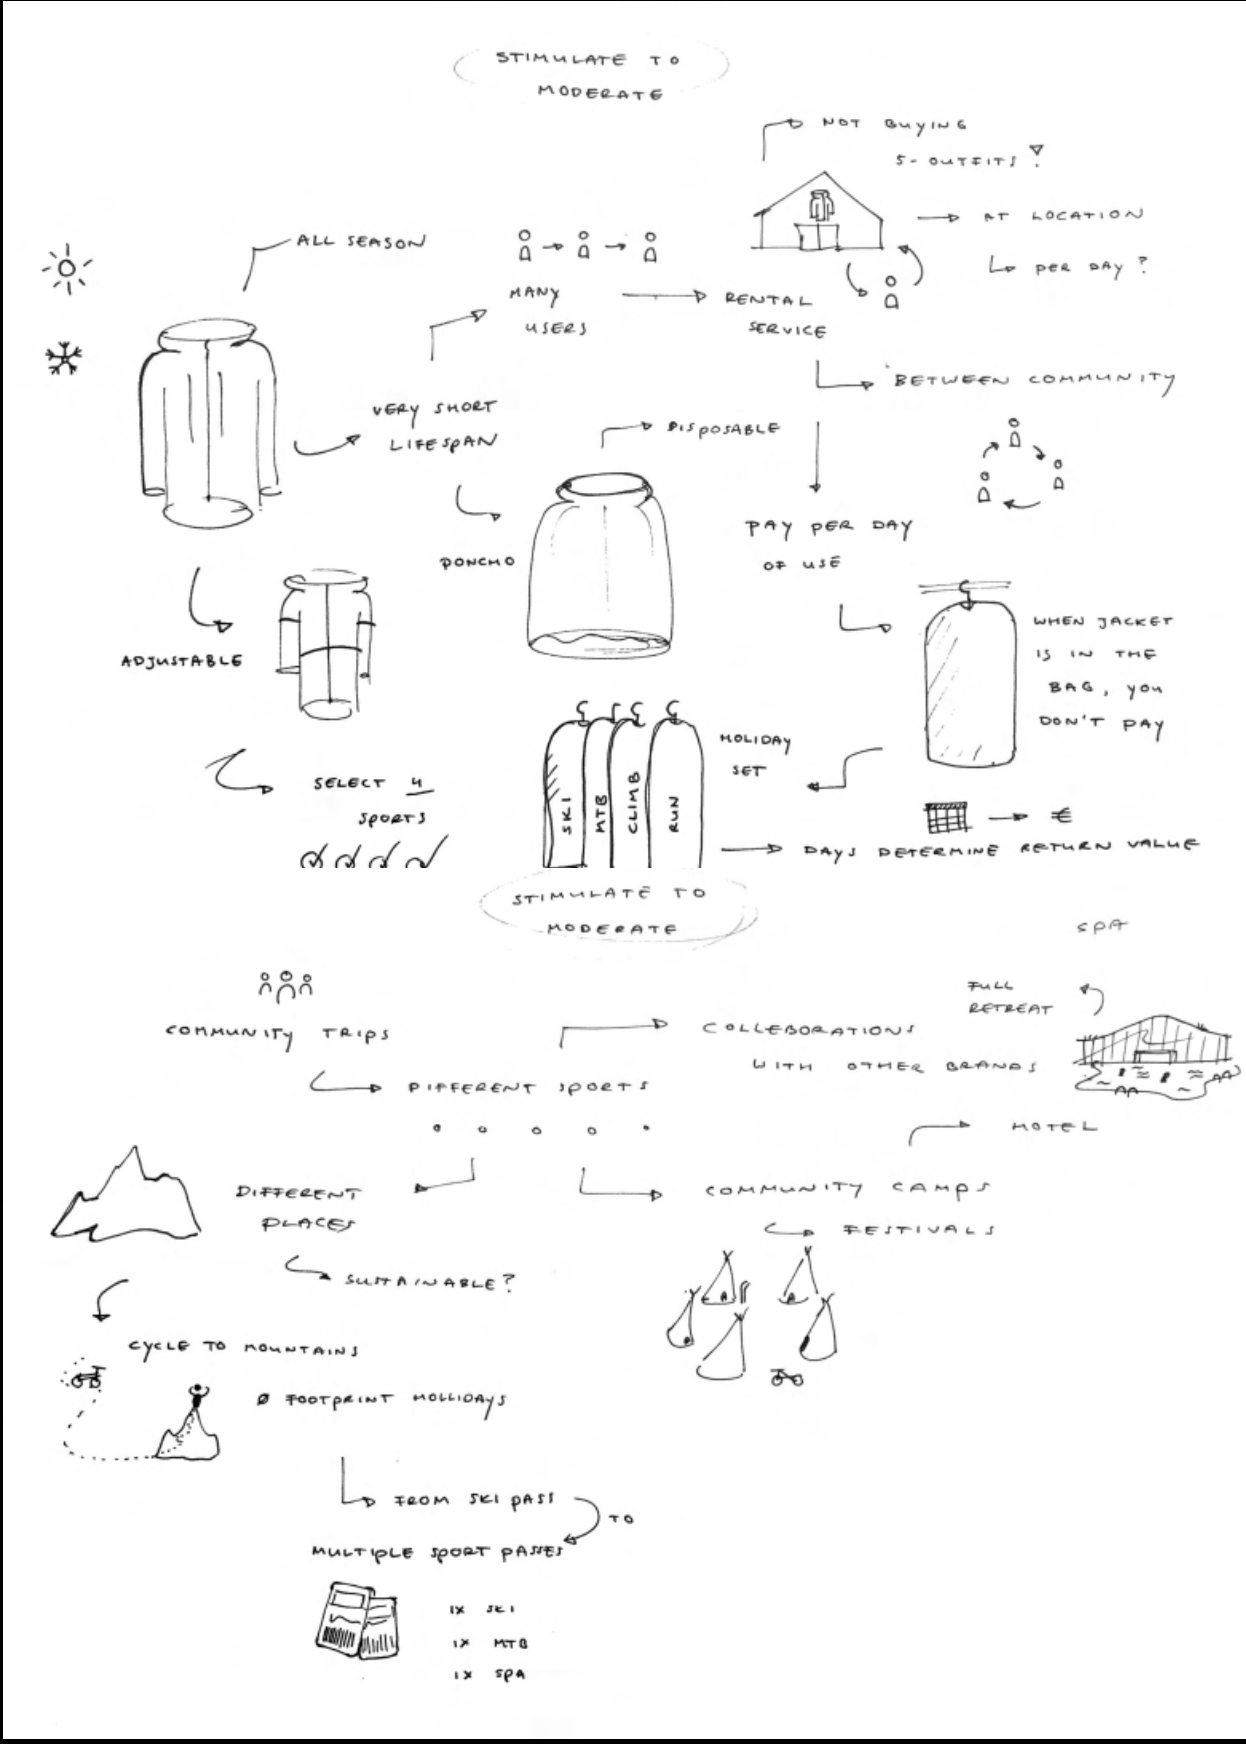 STIMULATE TO
MODERATE
NOT BUYING
5-OUTFITS!
AT LOCATION
PER DAY?
ALL SEASON
MANY
USERS
RENTAL
SERVICE
BETWEEN COMMUNITY
VERY SHORT
LIFESPAN
DISPOSABLE
PONCHO
PAY PER DAY
OF USE
ADJUSTABLE
WHEN JACKET
IS IN THE
BAG, YOU
DON'T PAY
SELECT 4
SPORTS
SKI
MTB
CLIMB
RUN
HOLIDAY
SET
€
DAYS DETERMINE RETURN VALUE
STIMULATE TO
MODERATE
SPA
FULL
RETREAT
COMMUNITY TRIPS
COLLEBORATIONS
WITH OTHER BRANDS
DIFFERENT SPORTS
HOTEL
DIFFERENT
PLACES
COMMUNITY CAMPS
FESTIVALS
SUSTAINABLE?
CYCLE TO MOUNTAINS
Ø FOOTPRINT HOLLIDAYS
FROM SKI PASS
TO
MULTIPLE SPORT PASSES
1X SKI
1X MTB
1X SPA